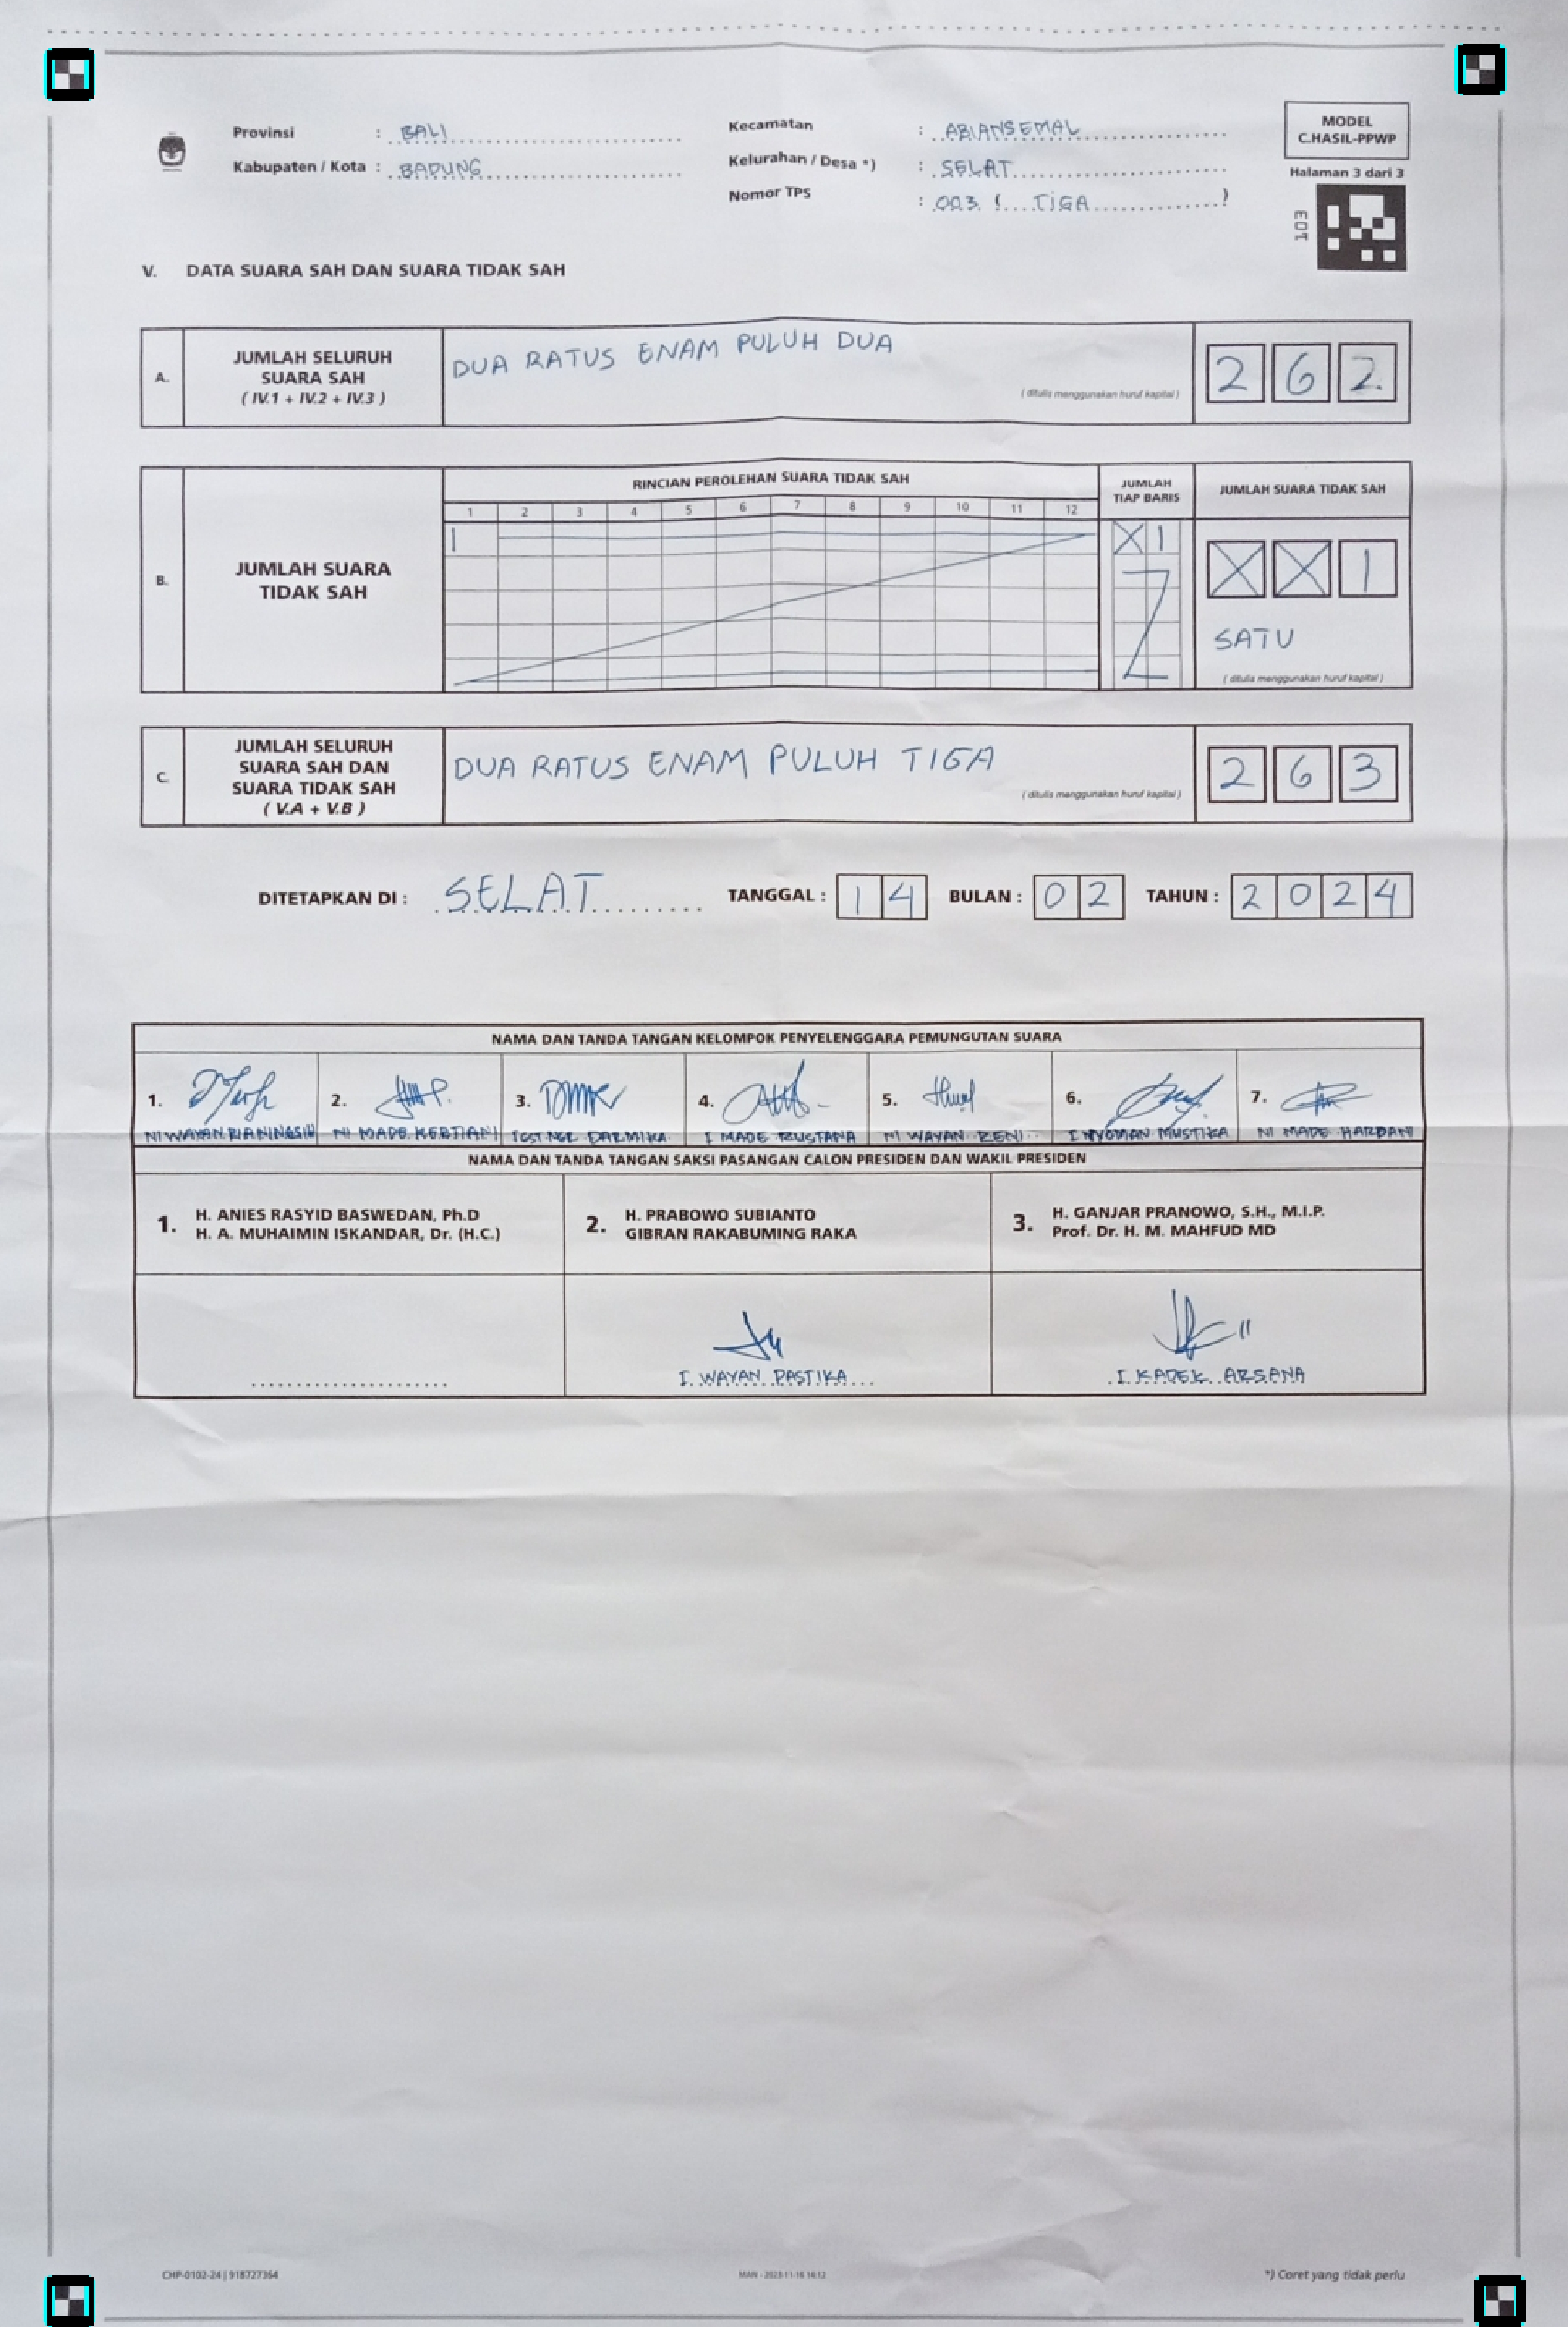 Provinsi : BALI
Kabupaten / Kota : BADUNG
Kecamatan : ABIANSEMAL
Kelurahan / Desa *) : SELAT
Nomor TPS : 003 ( TIGA )
MODEL
C.HASIL-PPWP
Halaman 3 dari 3
103
V. DATA SUARA SAH DAN SUARA TIDAK SAH
A. JUMLAH SELURUH
SUARA SAH
( IV.1 + IV.2 + IV.3 )
DUA RATUS ENAM PULUH DUA
( ditulis menggunakan huruf kapital )
2 6 2
B. JUMLAH SUARA
TIDAK SAH
RINCIAN PEROLEHAN SUARA TIDAK SAH
1 2 3 4 5 6 7 8 9 10 11 12
JUMLAH
TIAP BARIS
X 1
JUMLAH SUARA TIDAK SAH
X X 1
SATU
( ditulis menggunakan huruf kapital )
C. JUMLAH SELURUH
SUARA SAH DAN
SUARA TIDAK SAH
( V.A + V.B )
DUA RATUS ENAM PULUH TIGA
( ditulis menggunakan huruf kapital )
2 6 3
DITETAPKAN DI : SELAT TANGGAL : 1 4 BULAN : 0 2 TAHUN : 2 0 2 4
NAMA DAN TANDA TANGAN KELOMPOK PENYELENGGARA PEMUNGUTAN SUARA
1. 2. 3. 4. 5. 6. 7.
NI WAYAN RIANINGSIH NI MADE KERTIANI IGST NGR DARMIKA I MADE RUSTANA NI WAYAN RENI I NYOMAN MUSTIKA NI MADE HARDANI
NAMA DAN TANDA TANGAN SAKSI PASANGAN CALON PRESIDEN DAN WAKIL PRESIDEN
1. H. ANIES RASYID BASWEDAN, Ph.D
H. A. MUHAIMIN ISKANDAR, Dr. (H.C.)
2. H. PRABOWO SUBIANTO
GIBRAN RAKABUMING RAKA
3. H. GANJAR PRANOWO, S.H., M.I.P.
Prof. Dr. H. M. MAHFUD MD
I WAYAN PASTIKA
I KADEK ARSANA
CHP-0102-24 | 918727364
MAN - 2023-11-16 14:12
*) Coret yang tidak perlu